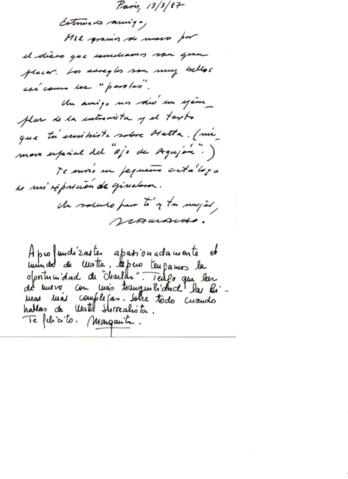 Paris, 13/3/87
Estimado amigo,
Mil gracias de nuevo por
el disco que escuchamos con gran
placer. Los arreglos son muy bellos
así como las "paroles".
Un amigo nos dió un ejem-
plar de la entrevista y el texto
que tú escribiste sobre Matta. (nú-
mero especial del "Ojo de Aguijón".)
Te envío un pequeño catálogo
de mi exposición de Ginebra.
Un saludo para tí y tu mujer,
Aprofundizastes apasionadamente el
mundo de Matta. Espero tengamos la
oportunidad de "charlar". Tengo que leer
de nuevo con más tranquilidad las
más complejas. Sobre todo cuando
hablas de Matta surrealista.
Te felicito. Margarita.